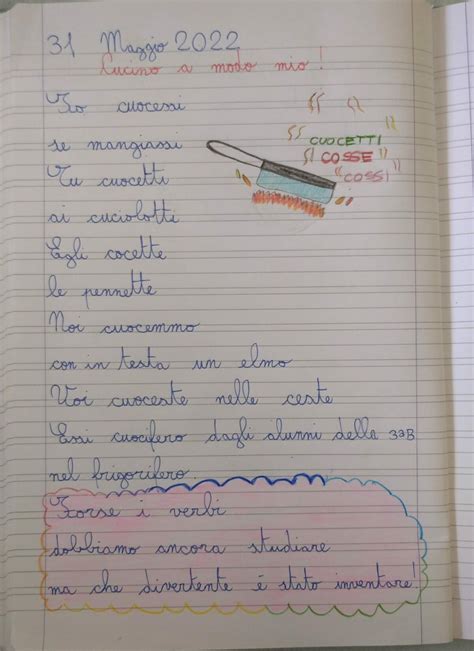 31 Maggio 2022
Cucino a modo mio!
Io cuocessi
se mangiassi
CUOCETTI
COSSE
"COSSI"
Tu cuocetti
ai cuciolotti
Egli cocette
le pennette
Noi cuocemmo
con in testa un elmo
Voi cuoceste nelle ceste
Essi cuocifero dagli alunni della 3aB
nel frigorifero
Forse i verbi
dobbiamo ancora studiare
ma che divertente è stato inventare!